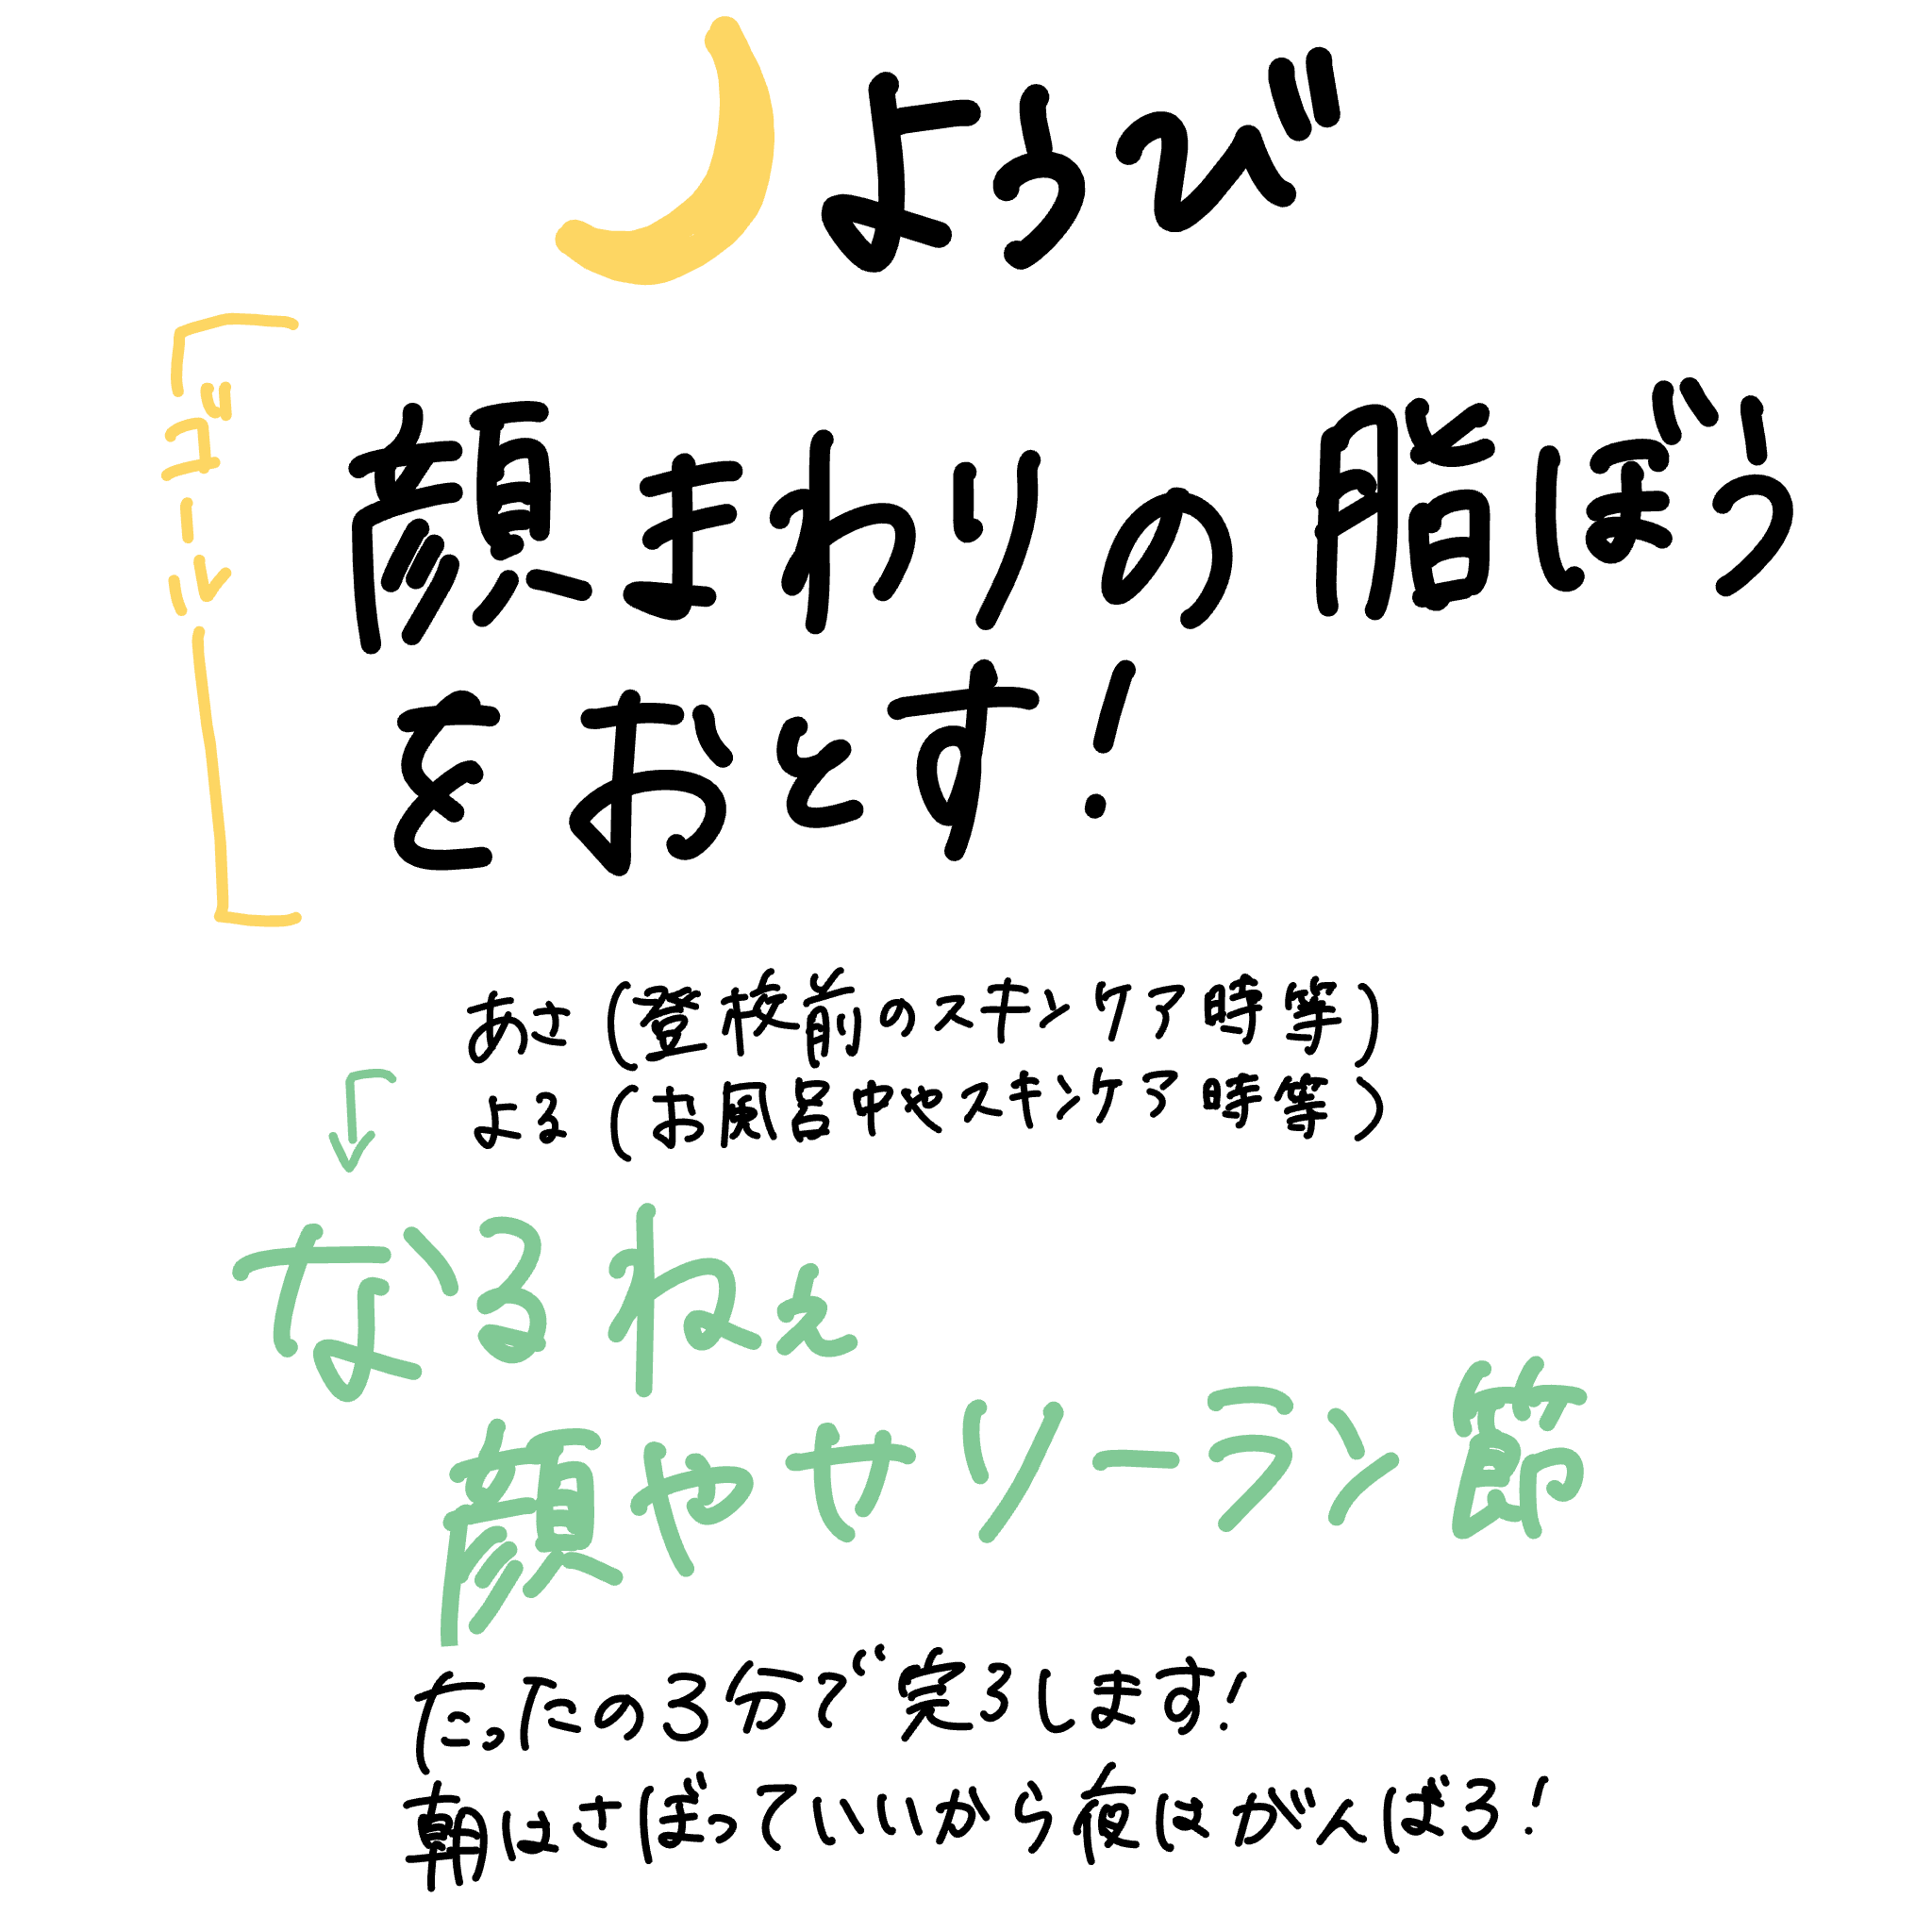 ようび
ゴール
顔まわりの脂ぼう
をおとす!
あさ(登校前のスキンケア時等)
よる(お風呂中やスキンケア時等)
なるねぇ
顔ヤセリーラン節
たったの3分で完了します!
朝はさぼっていいから夜はがんばろ!